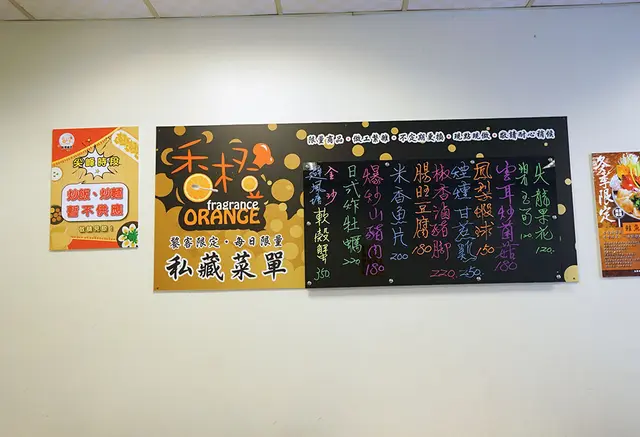 尖峰時段
炒飯、炒麵
暫不供應
敬請見諒！
香橙
fragrance
ORANGE
饕客限定・每日限量
私藏菜單
限量商品・做工繁雜・不定期更換・現點現做・敬請耐心稍候
火龍果花 120.
翠玉筍 100
雲耳炒菌菇 180
鳳梨蝦球 150
煙燻甘蔗雞 250.
椒香滷豬腳 220.
腸旺豆腐 180
米香魚片 200
爆炒山豬肉 180
日式炸牡蠣 220
金沙
避風塘 軟殼蟹 350
冬季限定